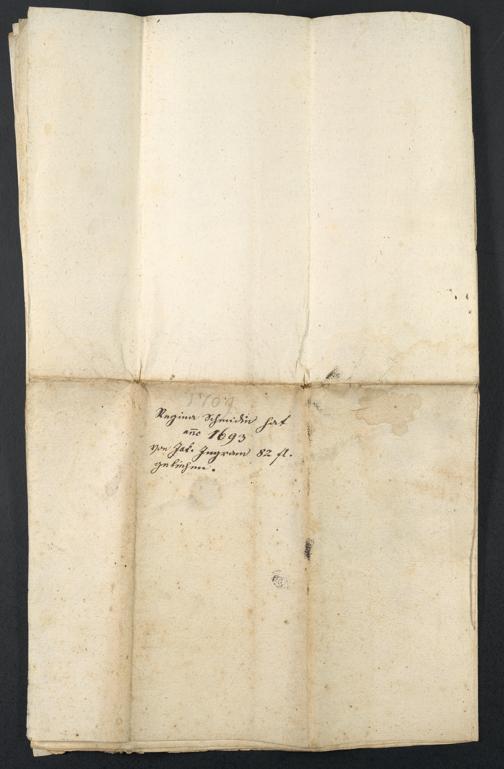 1704
Regina Schmidin hat
año 1693
von Jak. Ingram 82 fl.
geliehen.